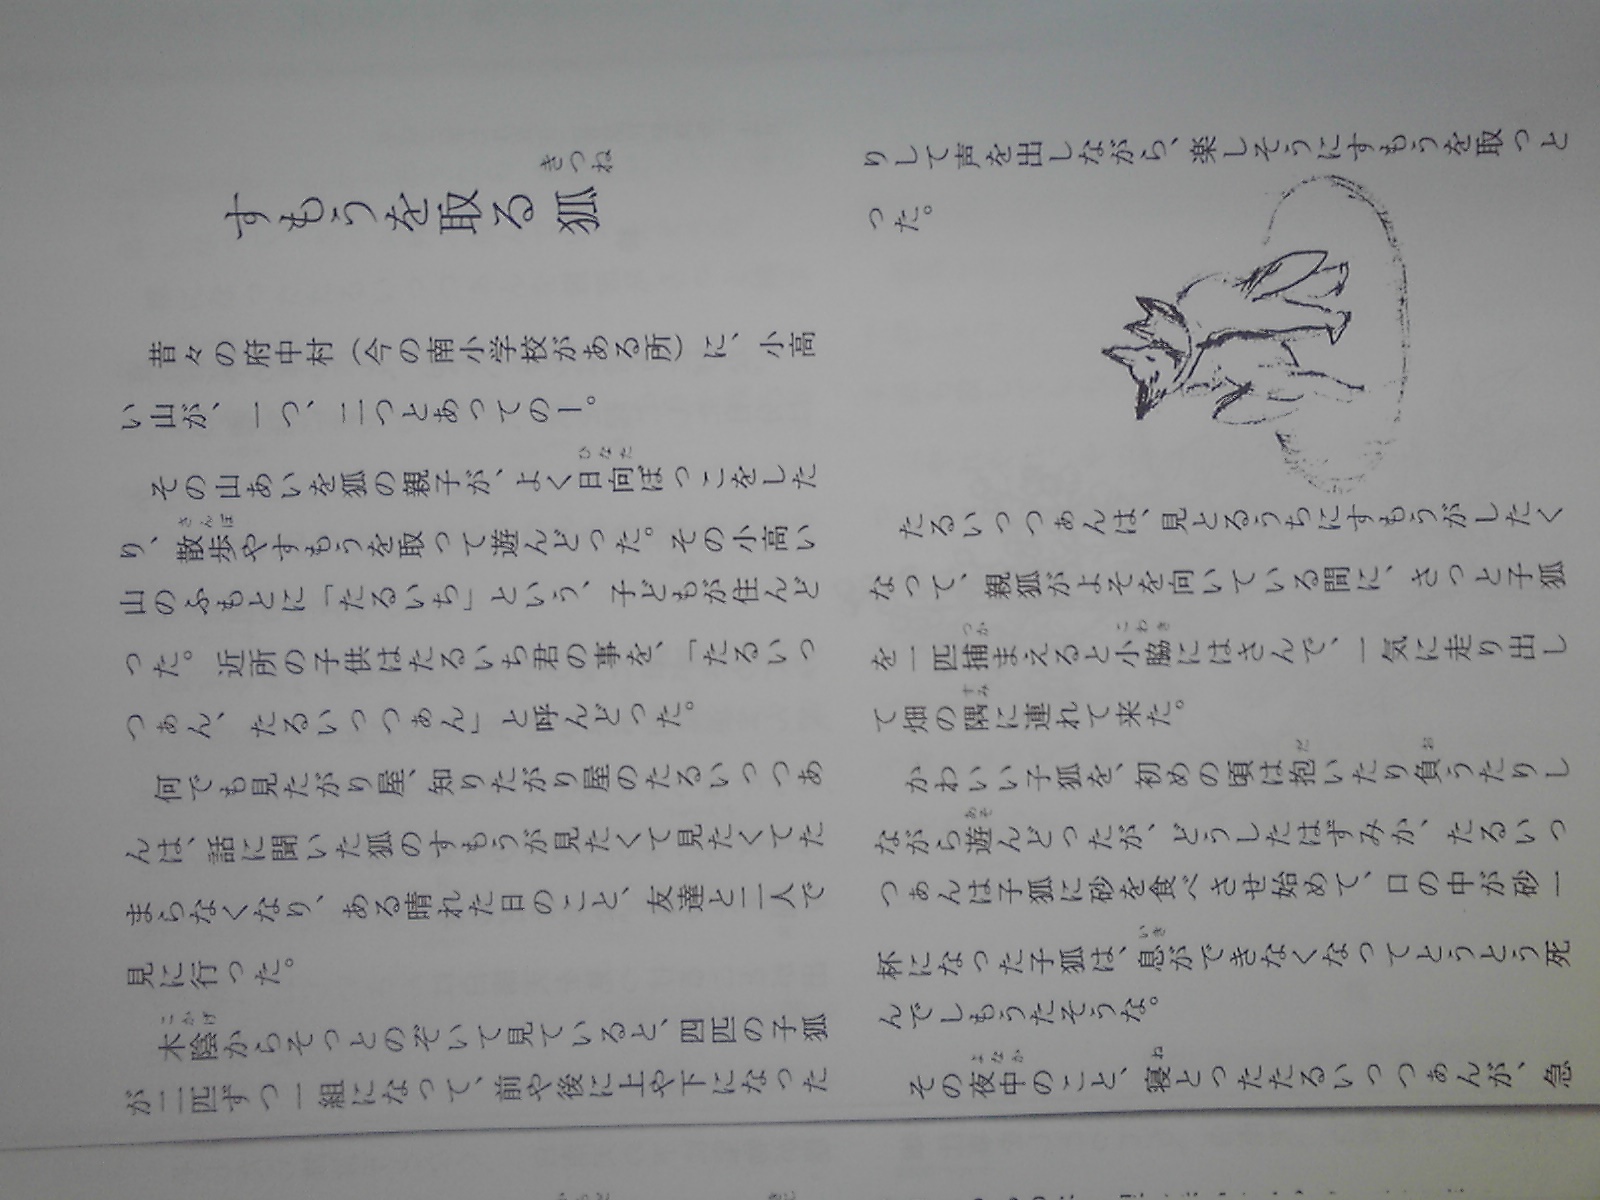 すもうを取る狐
きつね
昔々の府中村（今の南小学校がある所）に、小高
い山が、一つ、二つとあってのー。
その山あいを狐の親子が、よく日向ぼっこをした
ひなた
り、散歩やすもうを取って遊んどった。その小高い
さんぽ
山のふもとに「たるいち」という、子どもが住んど
った。近所の子供はたるいち君の事を、「たるいっ
つぁん、たるいっつぁん」と呼んどった。
何でも見たがり屋、知りたがり屋のたるいっつあ
んは、話に聞いた狐のすもうが見たくて見たくてた
まらなくなり、ある晴れた日のこと、友達と二人で
見に行った。
木陰からそっとのぞいて見ていると、四匹の子狐
こかげ
が二匹ずつ一組になって、前や後に上や下になった
りして声を出しながら、楽しそうにすもうを取っと
った。
たるいっつぁんは、見とるうちにすもうがしたく
なって、親狐がよそを向いている間に、さっと子狐
を一匹捕まえると小脇にはさんで、一気に走り出し
つか
こわき
て畑の隅に連れて来た。
すみ
かわいい子狐を、初めの頃は抱いたり負うたりし
だ
お
ながら遊んどったが、どうしたはずみか、たるいっ
あそ
つぁんは子狐に砂を食べさせ始めて、口の中が砂一
杯になった子狐は、息ができなくなってとうとう死
いき
んでしもうたそうな。
その夜中のこと、寝とったたるいっつぁんが、急
よなか
ね